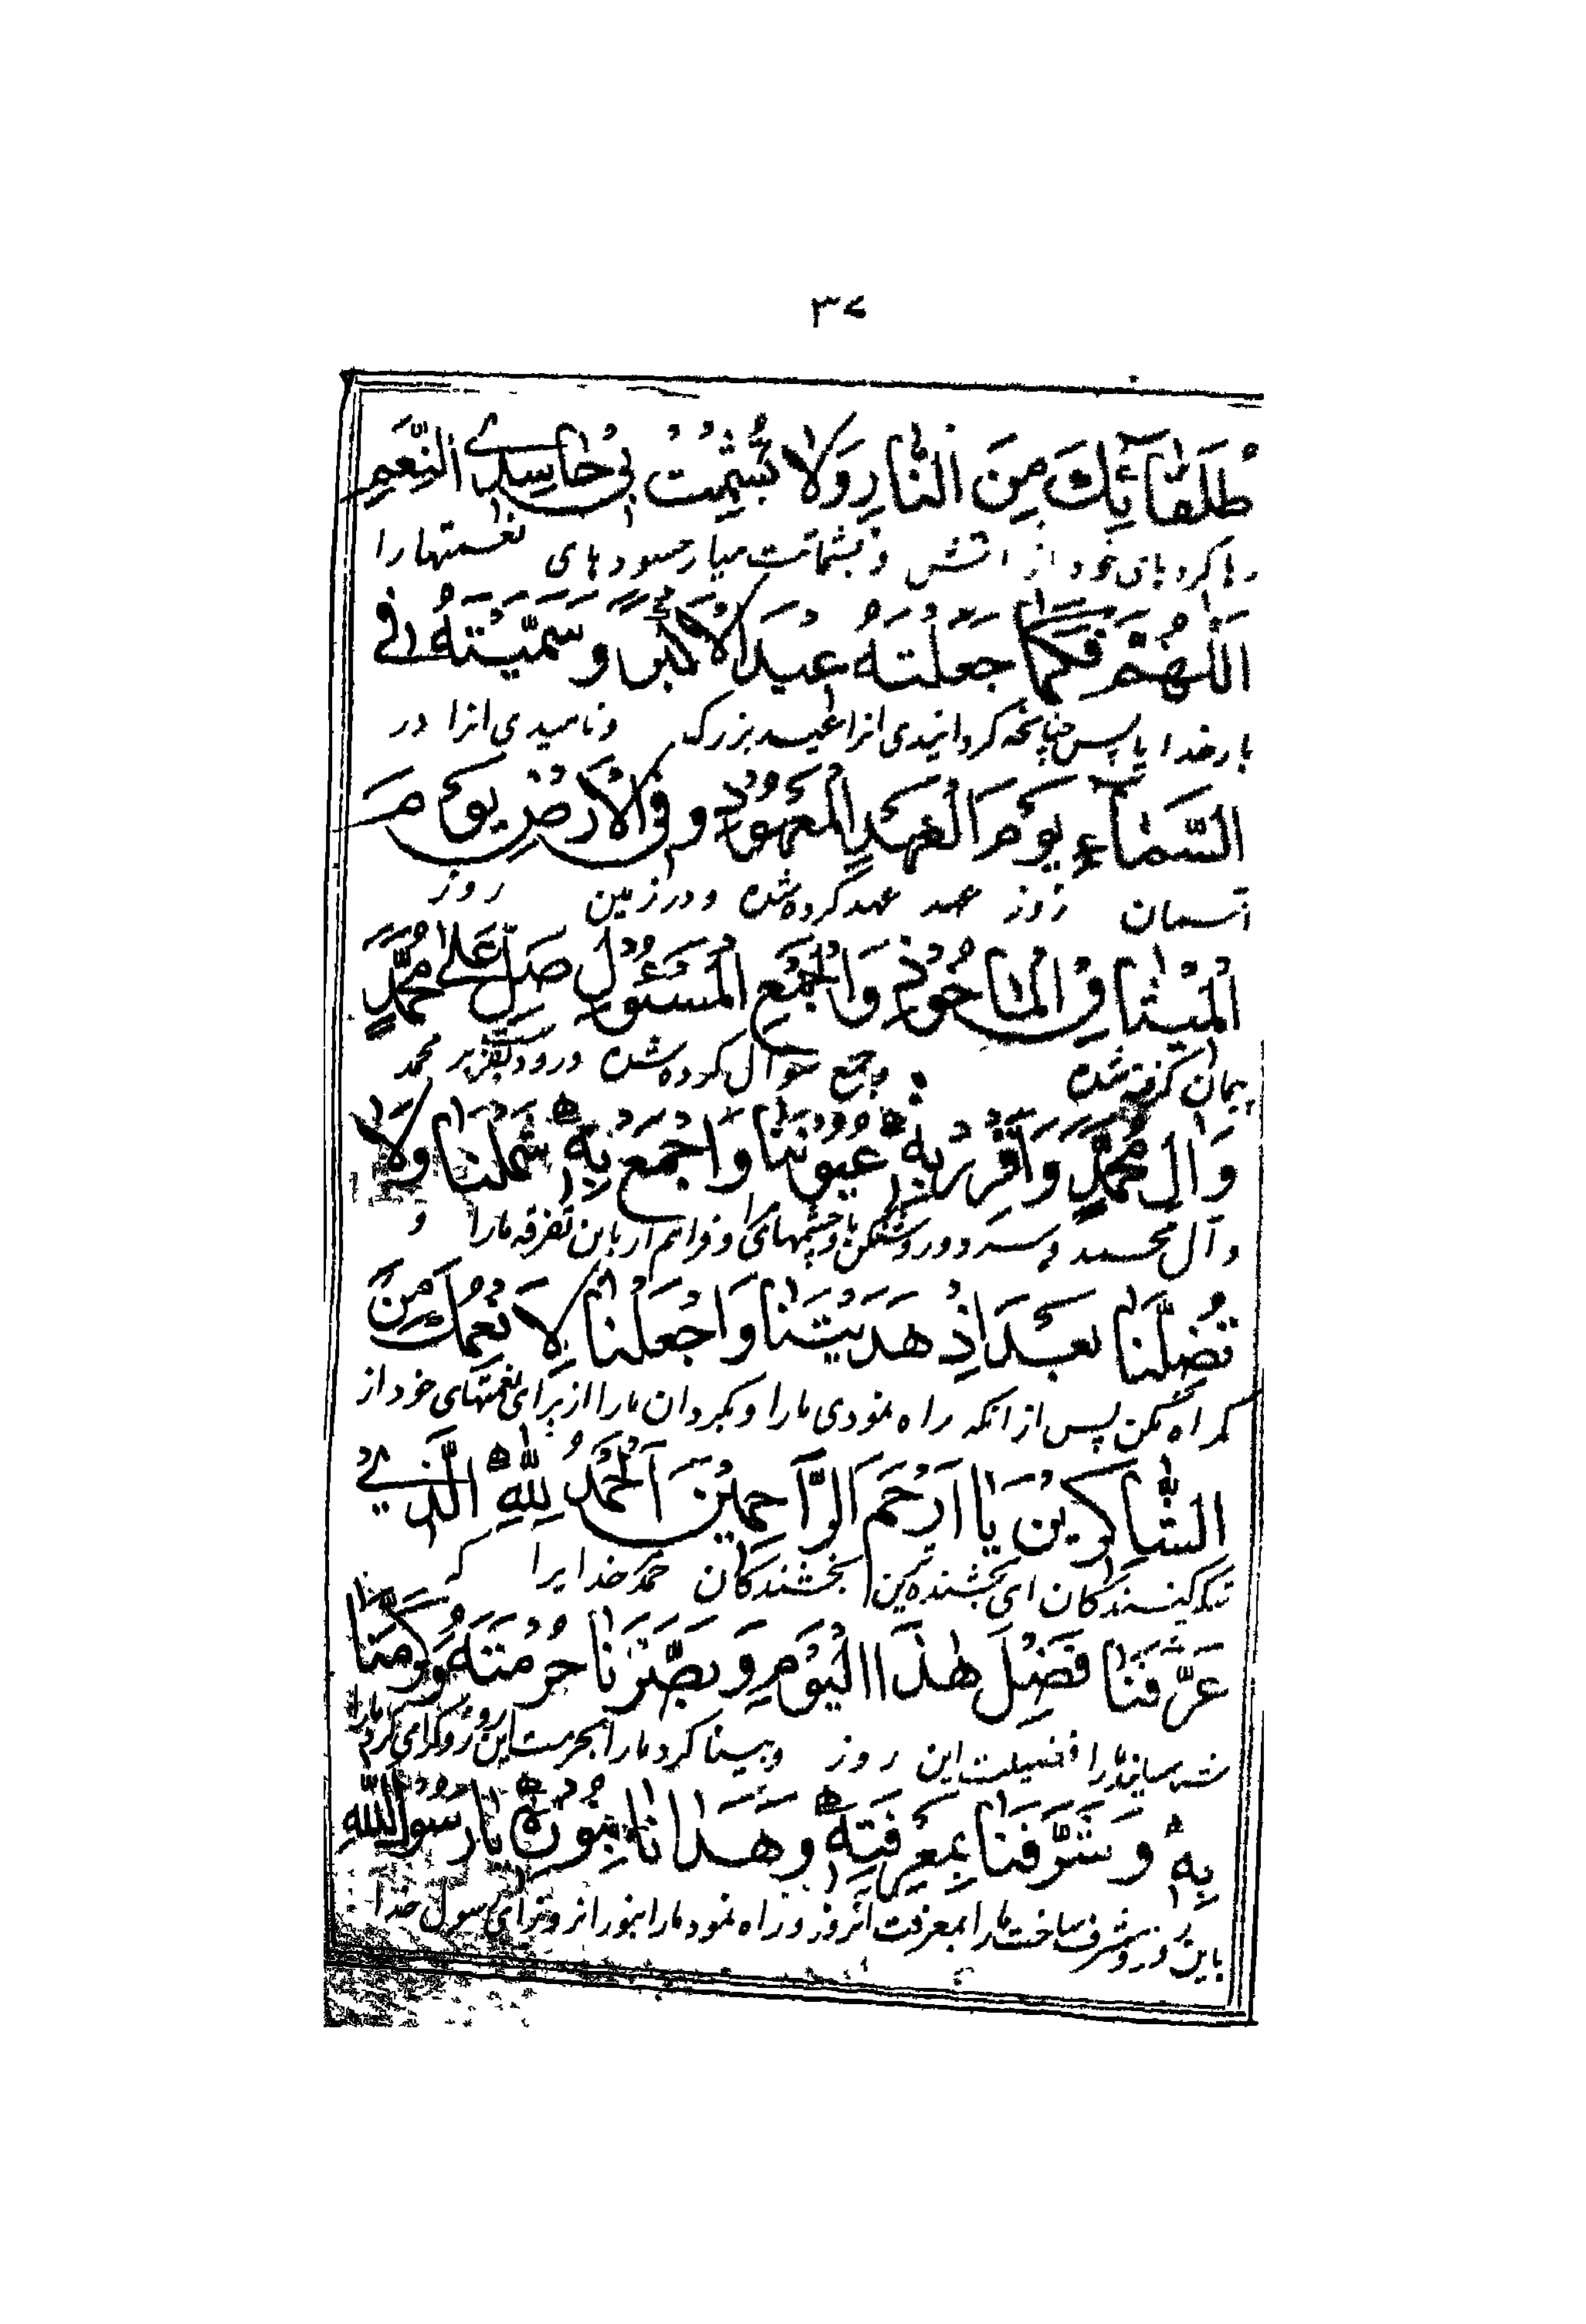 ٣٧
طُلَقَائِكَ مِنَ النَّارِ وَلَا تُشْمِتْ بِي حَاسِدِي النِّعَمِ
رها کردهای خود از اتش و بشماتت میار حسودهای نعمتها را
اَللّٰهُمَّ فَكَمَا جَعَلْتَهُ عِيْدَ الْاَكْبَرِ وَسَمَّيْتَهُ فِي
بار خدایا پس چنانچه کردانیدی انرا عید بزرک و نامیدی انرا در
السَّمَآءِ يَوْمَ الْعَهْدِ الْمَعْهُوْدِ وَفِي الْاَرْضِ يَوْمَ
اسمان روز عهد عهد کرده شده و در زمین روز
الْمِيْثَاقِ الْمَاْخُوْذِ وَالْجَمْعِ الْمَسْئُوْلِ صَلِّ عَلٰى مُحَمَّدٍ
پیمان گرفته شده وجمع سوال کرده شده درود بفرست بر محمد
وَاٰلِ مُحَمَّدٍ وَاَقْرِرْ بِهٖ عُيُوْنَنَا وَاجْمَعْ بِهٖ شَمْلَنَا وَلَا
و آل محمد و سرد و روشن کن باو چشمهای ما و فراهم ار باین تفرقه مارا و
تُضِلَّنَا بَعْدَ اِذْ هَدَيْتَنَا وَاجْعَلْنَا لِاَنْعُمِكَ مِنَ
کمراه مکن پس از انکه راه نمودی مارا و بکردان مارا از برای نعمتهای خود از
الشَّاكِرِيْنَ يَا اَرْحَمَ الرَّاحِمِيْنَ اَلْحَمْدُ لِلّٰهِ الَّذِيْ
شکر کنندکان ای بخشنده ترین بخشندکان حمد خدایرا که
عَرَّفَنَا فَضْلَ هٰذَا الْيَوْمِ وَبَصَّرَنَا حُرْمَتَهُ وَكَرَّمَنَا
شناسانید مارا فضیلت این روز و بینا کرد مارا بحرمت این روز و کرامی کرد مارا
بِهٖ وَشَرَّفَنَا بِمَعْرِفَتِهٖ وَهَدَانَا بِنُوْرِهٖ يَا رَسُوْلَ اللّٰهِ
باین روز و مشرف ساخت مارا بمعرفت انروز و راه نمود مارا بنور انروز ای رسول خدا